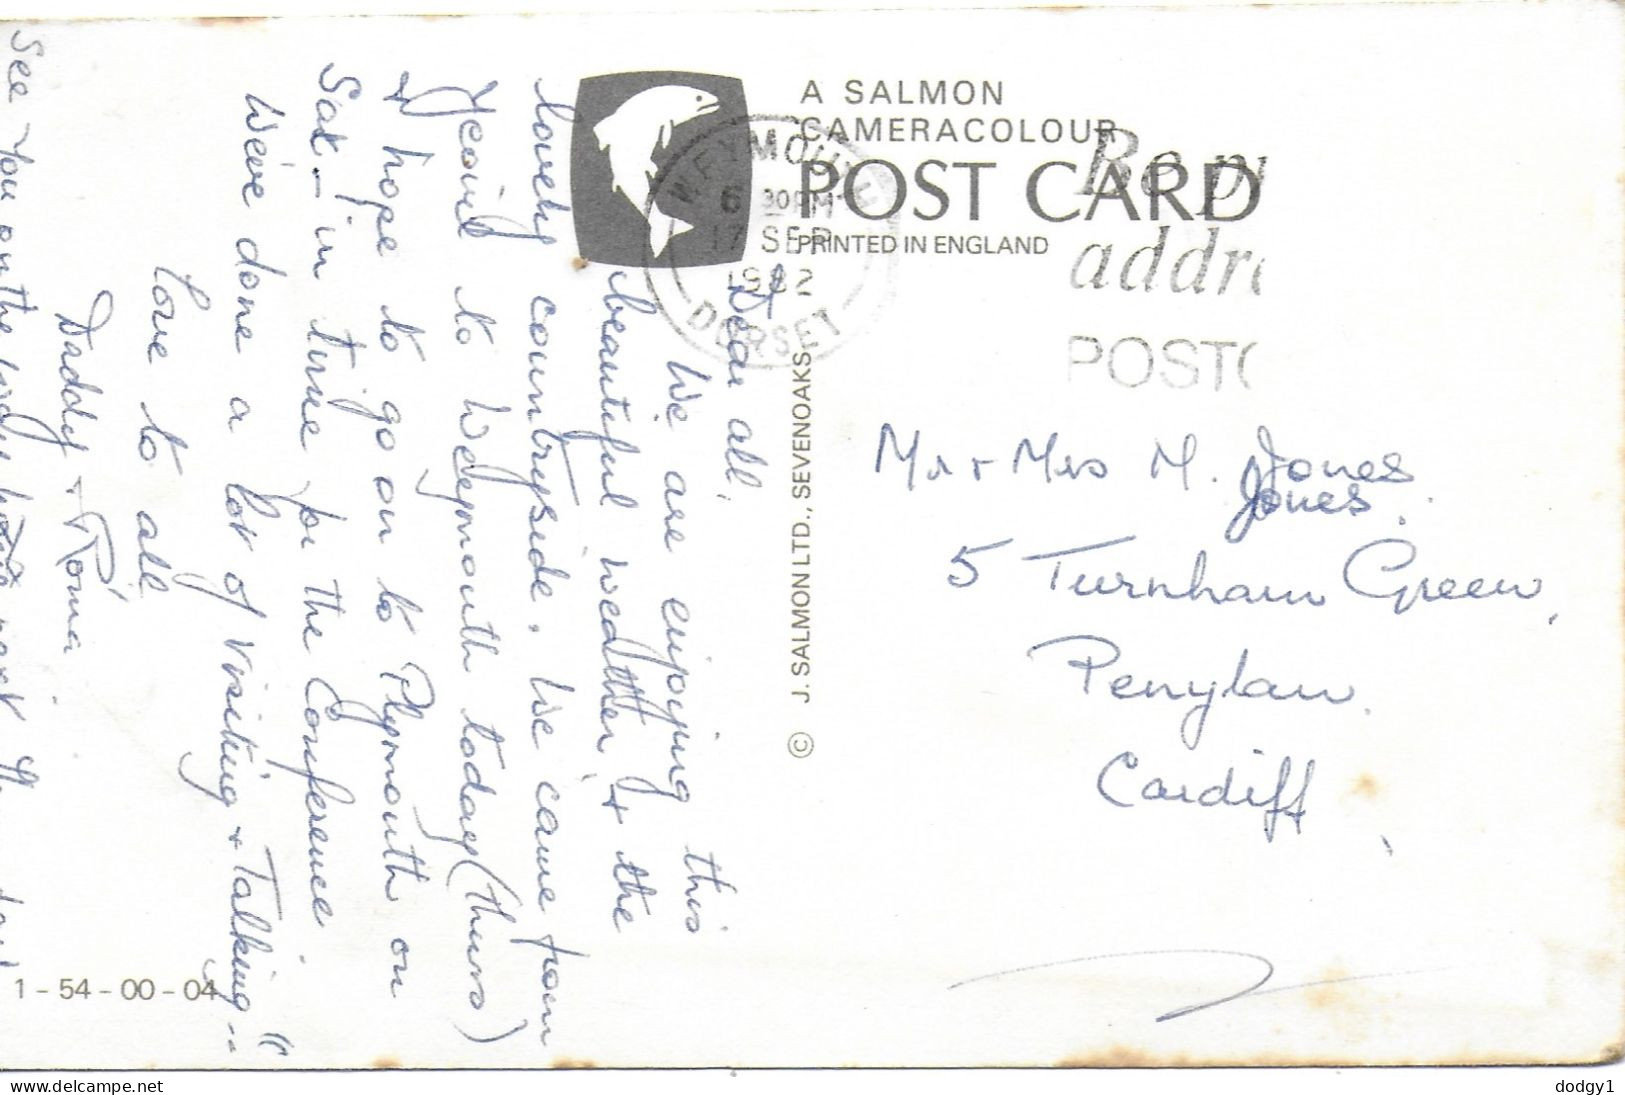 A SALMON
CAMERACOLOUR
POST CARD
PRINTED IN ENGLAND
WEYMOUTH
6 30PM
17 SEP
1982
DORSET
addre
POSTC
© J. SALMON LTD., SEVENOAKS
Dear all,
We are enjoying this
beautiful weather + the
lovely countryside. We came from
Yeovil to Weymouth today (Thurs)
+ hope to go on to Plymouth on
Sat – in time for the Conference
We've done a lot of visiting + Talking --
Love to all
Daddy + Rona
See you on the way
Mr + Mrs M. Jones
Jones.
5 Turnham Green,
Penylan.
Cardiff,
1 - 54 - 00 - 04
dodgy1